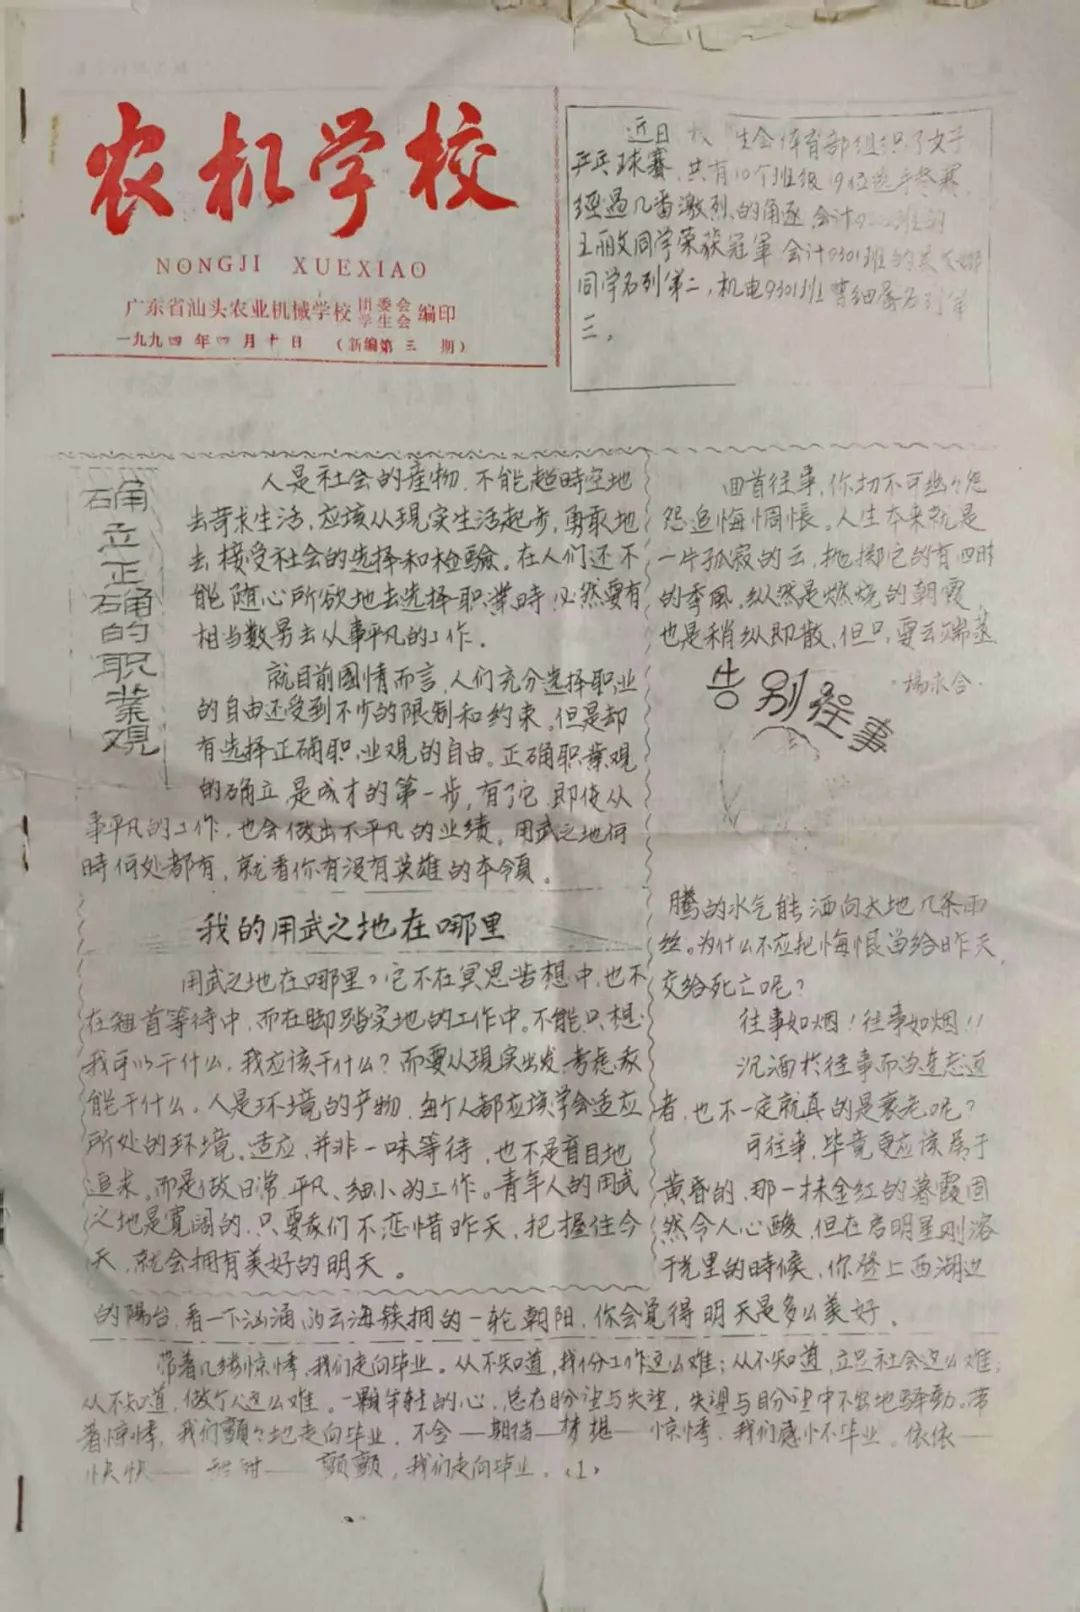 农机学校
NONGJI XUEXIAO
广东省汕头农业机械学校 团委会 学生会 编印
一九九四年四月十日 （新编第三期）
近日 生会体育部组织了女子
乒乓球赛，共有10个班级19位选手参赛，
经过几番激烈的角逐，会计 班的
王丽 同学荣获冠軍，会计9301班的
同学名列第二，机电9301班 名列第
三。
确立正确的职業观
人是社会的産物，不能超時空地
去苛求生活，应该从現实生活起步，勇敢地
去接受社会的选择和检驗。在人们还不
能随心所欲地去选择职業時，必然要有
相当数易去从事平凡的工作。
就目前國情而言，人们充分选择职业
的自由还受到不少的限制和约束。但是却
有选择正确职业观的自由。正确职業观
的确立，是成才的第一步，有了它，即使从
事平凡的工作，也会做出不平凡的业绩。用武之地何
時何处都有，就看你有沒有英雄的本領。
我的用武之地在哪里
用武之地在哪里？它不在冥思苦想中，也不
在翘首等待中，而在脚踏实地的工作中。不能只想
我可以干什么，我应该干什么？而要从現实出发，考虑我
能干什么。人是环境的产物，每个人都应该学会适应
所处的环境。适应，并非一味等待，也不是盲目地
追求，而是做日常、平凡、细小的工作。青年人的用武
之地是寬闊的，只要我们不恋惜昨天，把握住今
天，就会拥有美好的明天。
回首往事，你切不可幽々怨
怨追悔惆悵。人生本来就是
一片孤寂的云，抛掷它的有四時
的季風，纵然是燃烧的朝霞，
也是稍纵即散，但只要云端蒸
告别往事
腾的水气能洒向大地几条雨
丝。为什么不应把悔恨留给昨天，
交给死亡呢？
往事如烟！往事如烟！！
沉湎於往事而流连忘返
者，也不一定就真的是衰老呢？
可往事，毕竟更应该属于
黄昏的，那一抹金红的暮霞固
然令人心酸，但在启明星刚溶
于 里的時候，你登上西湖边
的陽台，看一下汹涌的云海簇拥的一轮朝阳，你会觉得明天是多么美好。
带着几缕惊悸，我们走向毕业。从不知道，找份工作这么难；从不知道，立足社会这么难；
从不知道，做个人这么难。一顆年轻的心，总在盼望与失望，失望与盼望中不安地驿动。带
着惊悸，我们顫々地走向毕业，不舍——期待——梦想——惊悸，我们感怀毕业。依依——
怏怏—— —— 颤颤，我们走向毕业。（1）